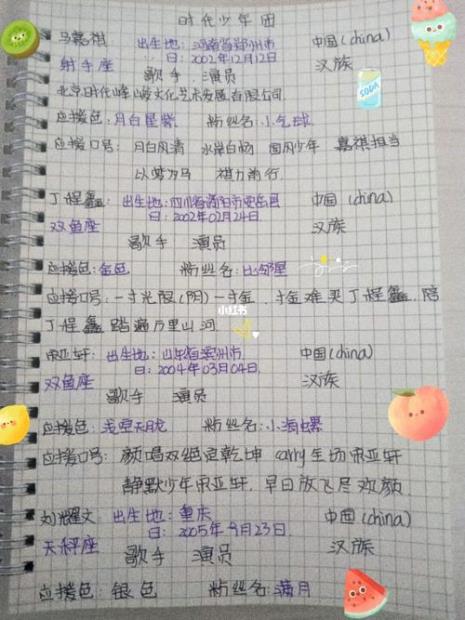 时代少年团
马嘉祺 出生地:河南省郑州市 中国(china)
射手座 日:2002年12月12日 汉族
歌手 演员
北京时代峰峻文化艺术发展有限公司
应援色:月白星紫 粉丝名:小气球
应援口号:月白风清 水岸白杨 国风少年 嘉祺担当
以紫为马 祺力而行.
丁程鑫: 出生地:四川省 市 县 中国(china)
双鱼座 日:2002年02月24日 汉族
歌手 演员
应援色:金色 粉丝名:比邻星
应援口号:一寸光程(阴)一寸金,寸金难买丁程鑫,陪
小红书
丁程鑫踏遍万里山河
宋亚轩: 出生地:山东省滨州市 中国(china)
双鱼座 日:2004年03月04日. 汉族
歌手 演员
应援色: 粉丝名:小海螺
应援口号:颜唱双绝定乾坤 carry全场宋亚轩
静默少年宋亚轩,早日放飞尽欢颜.
刘耀文 出生地:重庆 中国(china)
天秤座 日:2005年9月23日. 汉族
歌手 演员
应援色:银色 粉丝名:满月
SODA